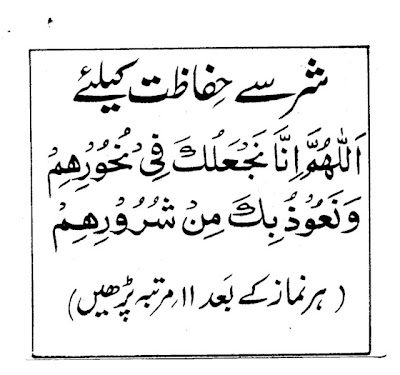 شر سے حِفاظت کیلئے
اَللّٰهُمَّ اِنَّا نَجْعَلُكَ فِیْ نُحُوْرِهِمْ
وَنَعُوْذُ بِكَ مِنْ شُرُوْرِهِمْ
(ہر نماز کے بَعد ۱۱ مرتبہ پڑھیں)